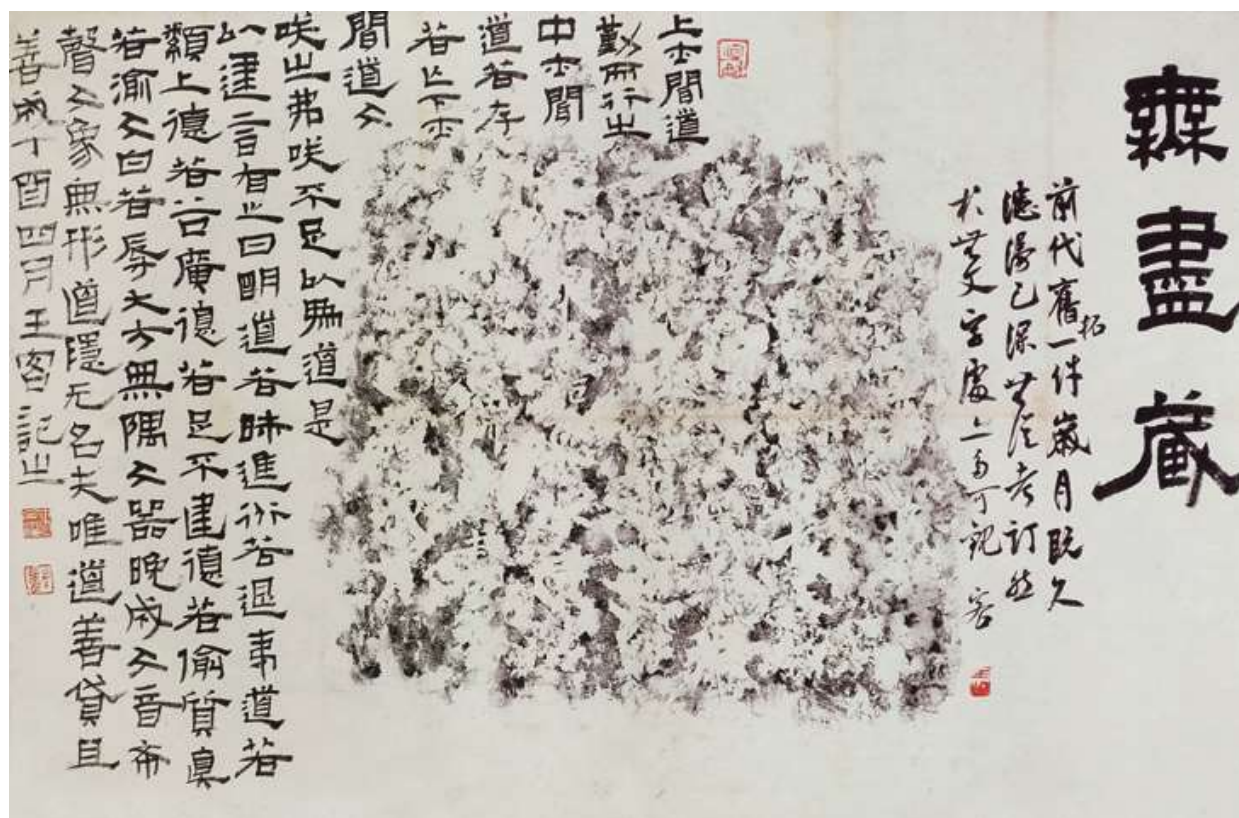 無盡藏
前代舊拓一件歲月既久
漶漫已深無從考訂然
於無文字處亦多可觀 客
上士聞道
勤而行之
中士聞
道若存
若亡下士
聞道大
咲之弗咲不足以為道是
以建言有之曰明道若昧進道若退夷道若
纇上德若谷廣德若足不建德若偷質真
若渝大白若辱大方無隅大器晚成大音希
聲大象無形道隱无名夫唯道善貸且
善成丁酉四月王客記之